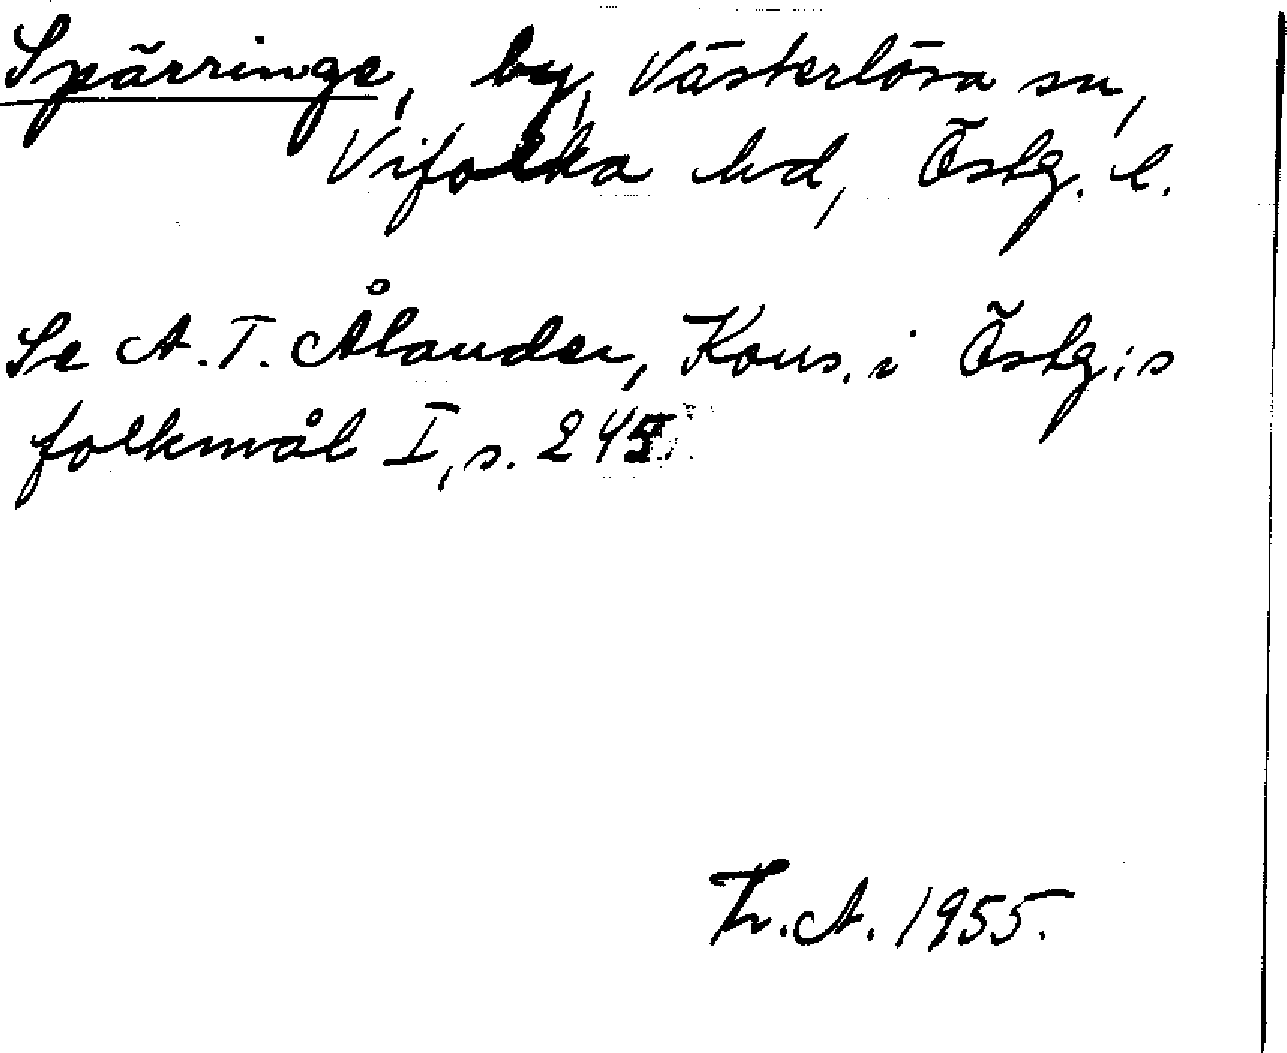 Spärringe, by, Västerlösa sn,
Vifolka hd, Östg. l.
Se A. T. Ålander, Kons. i Östg:s
folkmål I, s. 245
Th. A. 1955.